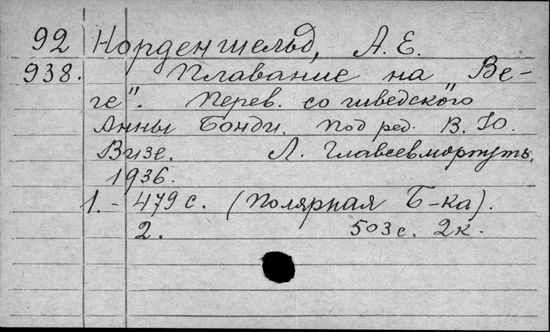 92 Норденшельд, А.Е.
938. Плавание на "Ве-
ге". Перев. со шведского
Анны Бонди. Под ред. В.Ю.
Визе. Л. Главсевморпуть,
1936.
1. - 479 с. (Полярная Б-ка).
2. 503 с. 2 к.